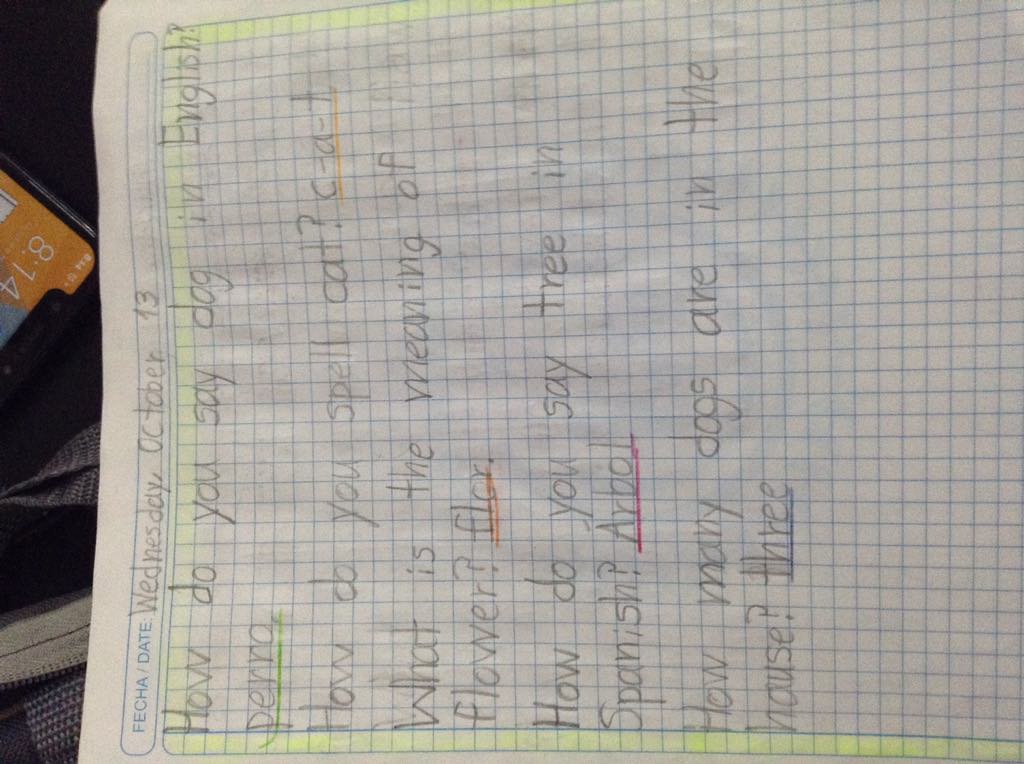 FECHA / DATE: Wednesday, October 13
How do you say dog in English?
perro.
How do you spell cat? c-a-t
What is the meaning of
flower? flor.
How do you say tree in
Spanish? Arbol
How many dogs are in the
house? three
8:14